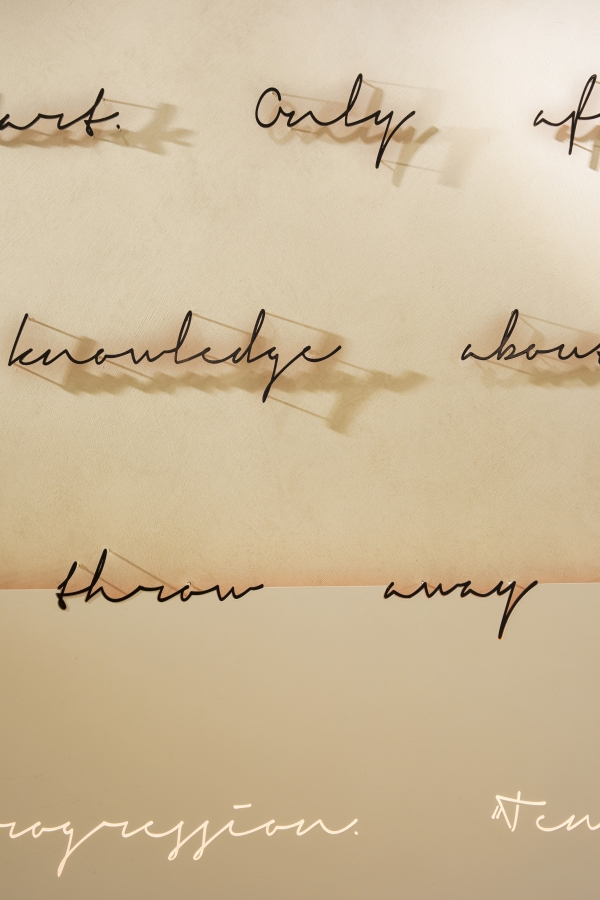 art. Only af
knowledge about
throw away
rogression. Ten